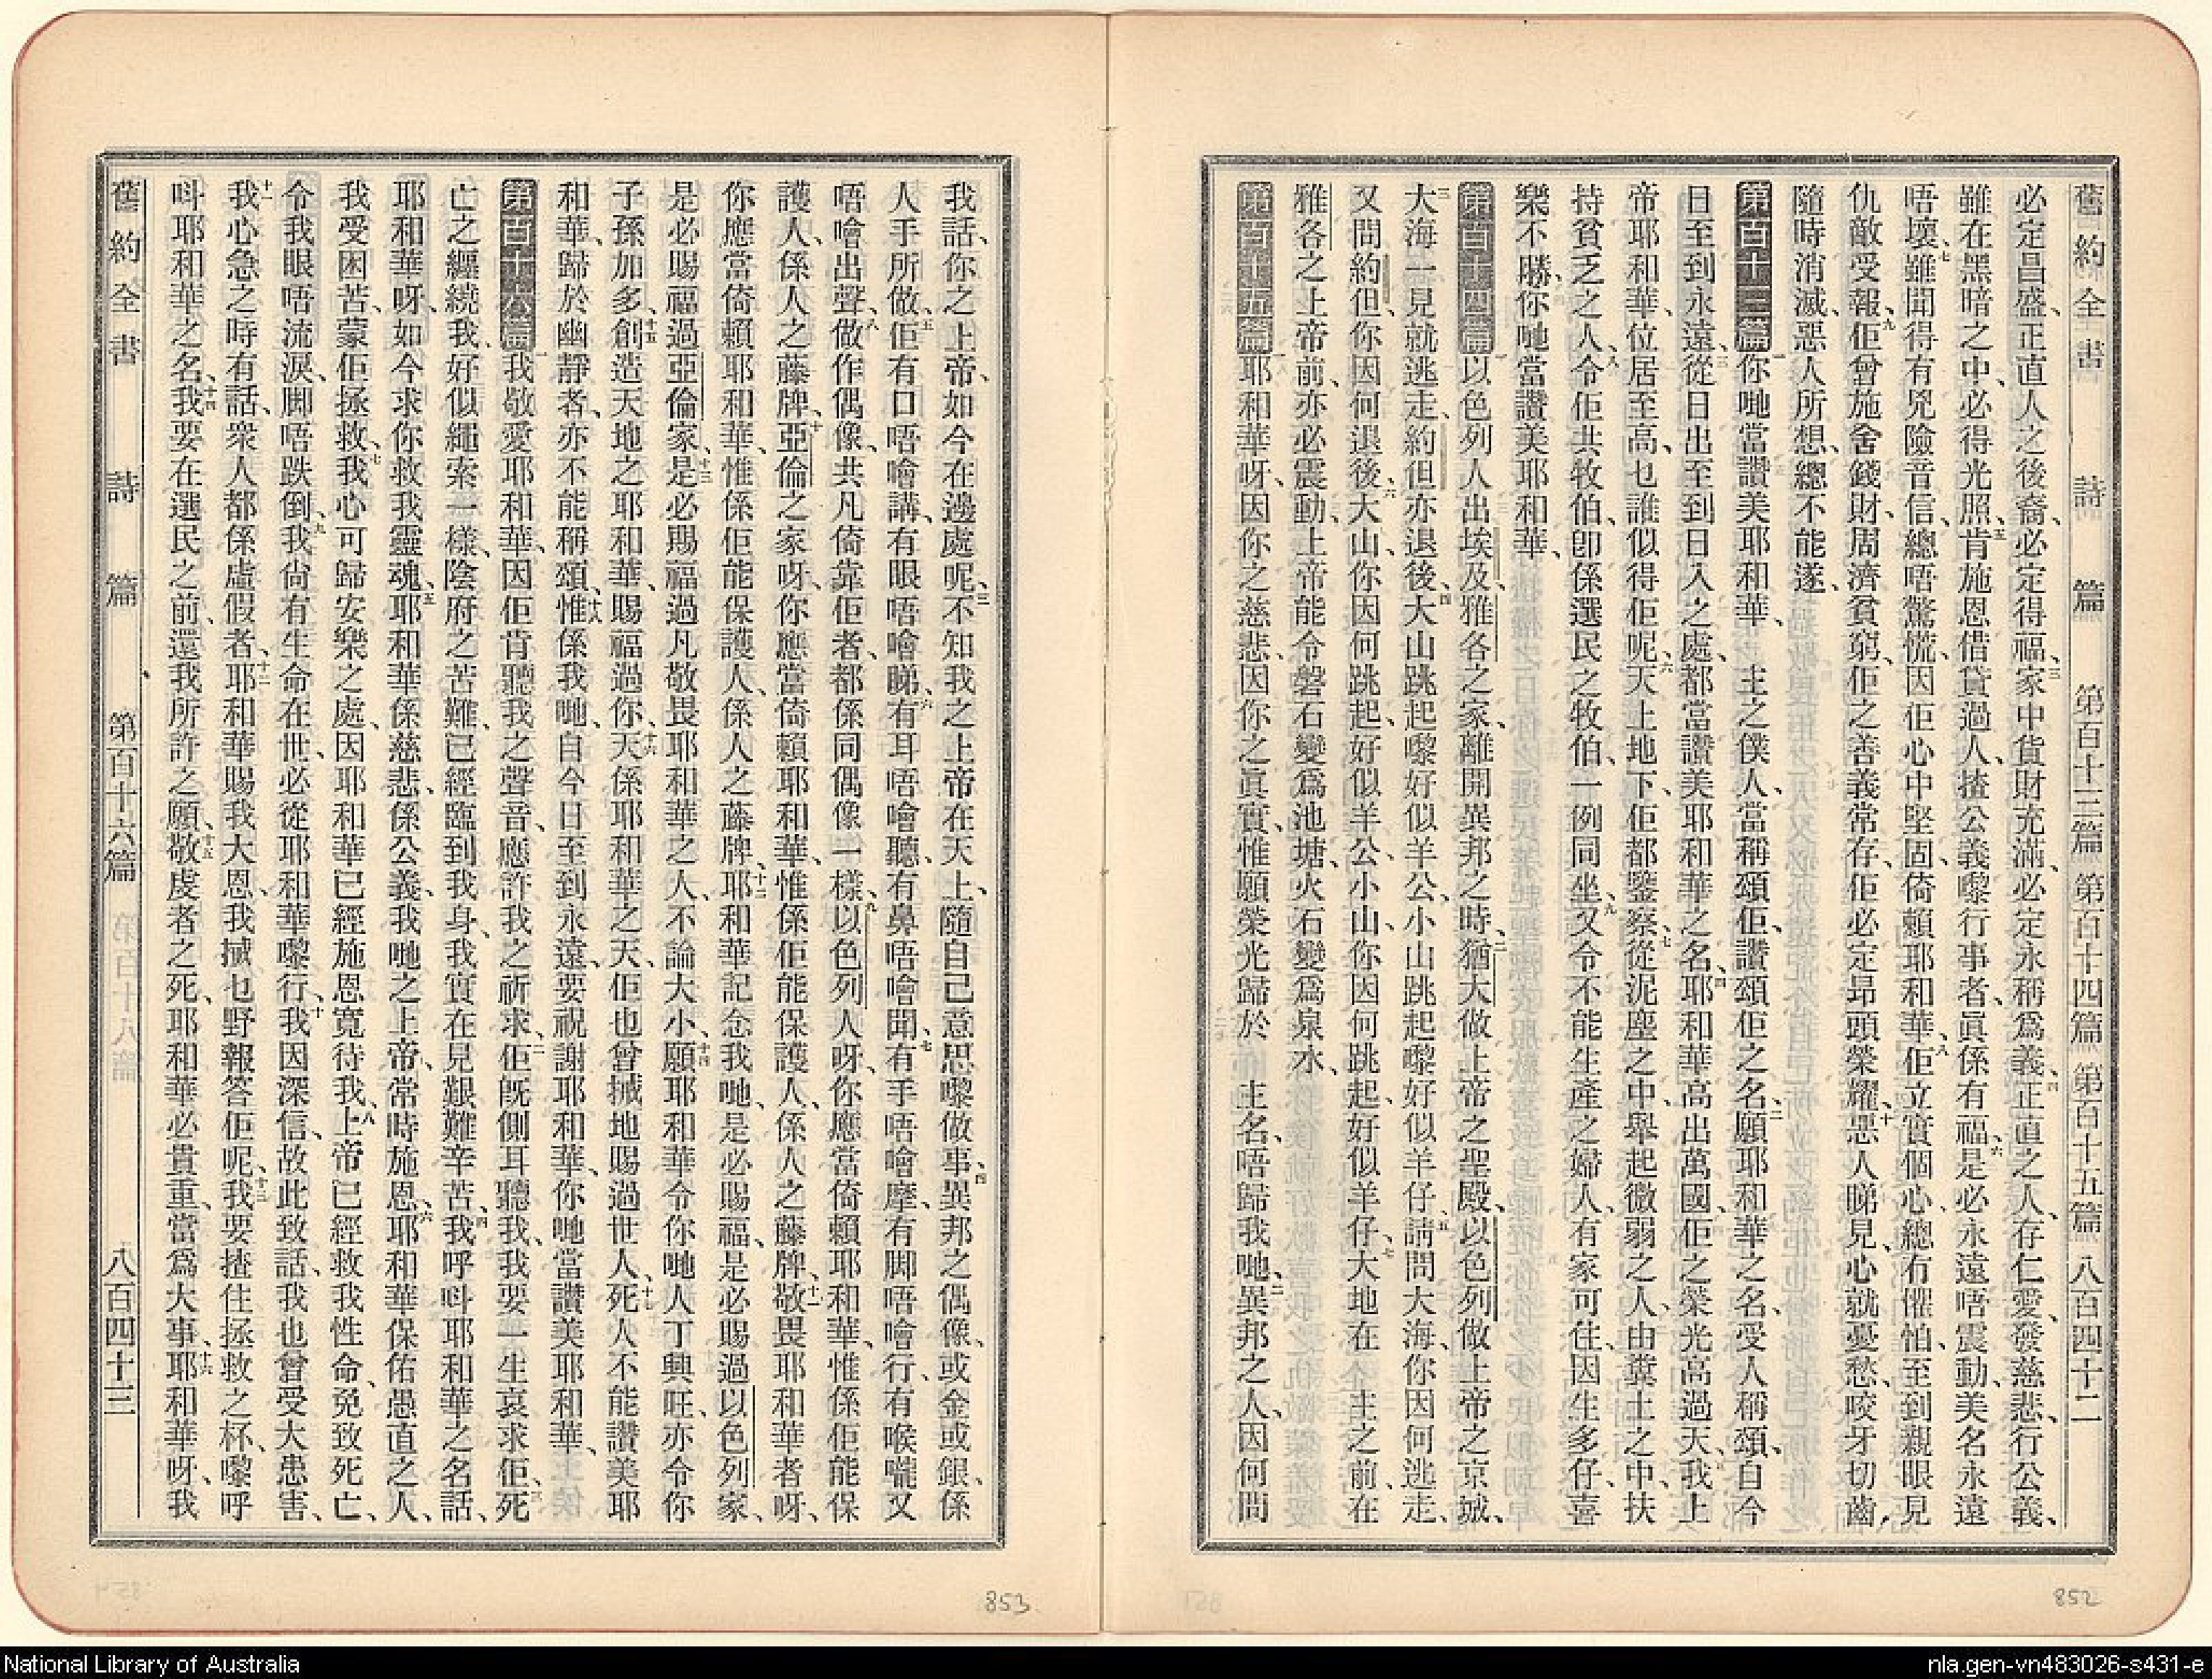 舊約全書　詩　篇　第百十三篇　第百十四篇　第百十五篇　八百四十二
必定昌盛、正直人之後裔、必定得福、三家中貨財充滿、必定永稱爲義、四正直之人、存仁愛、發慈悲、行公義、
雖在黑暗之中、必得光照、五肯施恩借貸過人、揸公義嚟行事者、眞係有福、六是必永遠唔震動、美名永遠
唔壞、七雖聞得有兇險音信、總唔驚慌、因佢心中堅固、倚賴耶和華、八佢立實個心、總冇懼怕、至到親眼見
仇敵受報、九佢曾施舍錢財、周濟貧窮、佢之善義常存、佢必定昂頭榮耀、十惡人睇見、心就憂愁、咬牙切齒、
隨時消滅、惡人所想、總不能遂、
第百十三篇一你哋當讚美耶和華、　主之僕人、當稱頌佢、讚頌佢之名、二願耶和華之名、受人稱頌、自今
日至到永遠、三從日出至到日入之處、都當讚美耶和華之名、四耶和華高出萬國、佢之榮光高過天、五我上
帝耶和華、位居至高、乜誰似得佢呢、六天上地下、佢都鑒察、七從泥塵之中、舉起微弱之人、由糞土之中、扶
持貧乏之人、八令佢共牧伯、卽係選民之牧伯、一例同坐、九又令不能生產之婦人、有家可住、因生多仔、喜
樂不勝、你哋當讚美耶和華、
第百十四篇一以色列人出埃及、雅各之家、離開異邦之時、二猶大做上帝之聖殿、以色列做上帝之京城、
三大海一見就逃走、約但亦退後、四大山跳起嚟好似羊公、小山跳起嚟好似羊仔、五請問大海、你因何逃走、
又問約但、你因何退後、六大山、你因何跳起、好似羊公、小山、你因何跳起、好似羊仔、七大地在　主之前、在
雅各之上帝前、亦必震動、八上帝能令磐石變爲池塘、火石變爲泉水、
第百十五篇一耶和華呀、因你之慈悲、因你之眞實、惟願榮光歸於　主名、唔歸我哋、二異邦之人、因何問
我話、你之上帝、如今在邊處呢、三不知我之上帝在天上、隨自己意思嚟做事、四異邦之偶像、或金或銀、係
人手所做、五佢有口唔噲講、有眼唔噲睇、六有耳唔噲聽、有鼻唔噲聞、七有手唔噲摩、有脚唔噲行、有喉嚨又
唔噲出聲、八做作偶像、共凡倚靠佢者、都係同偶像一樣、九以色列人呀、你應當倚賴耶和華、惟係佢能保
護人、係人之藤牌、十亞倫之家呀、你應當倚賴耶和華、惟係佢能保護人、係人之藤牌、十一敬畏耶和華者呀、
你應當倚賴耶和華、惟係佢能保護人、係人之藤牌、十二耶和華記念我哋、是必賜福、是必賜過以色列家、
是必賜福過亞倫家、十三是必賜福過凡敬畏耶和華之人、不論大小、十四願耶和華令你哋人丁興旺、亦令你
子孫加多、十五創造天地之耶和華、賜福過你、十六天係耶和華之天、佢也曾搣地賜過世人、十七死人不能讚美耶
和華、歸於幽靜者、亦不能稱頌、十八惟係我哋、自今日至到永遠、要祝謝耶和華、你哋當讚美耶和華、
第百十六篇一我敬愛耶和華、因佢肯聽我之聲音、應許我之祈求、二佢旣側耳聽我、我要一生哀求佢、三死
亡之纒繞我、好似繩索一樣、陰府之苦難、已經臨到我身、我實在見艱難辛苦、四我呼呌耶和華之名話、
耶和華呀、如今求你救我靈魂、五耶和華係慈悲、係公義、我哋之上帝、常時施恩、六耶和華保佑愚直之人、
我受困苦、蒙佢拯救、七我心可歸安樂之處、因耶和華已經施恩寬待我、八上帝已經救我性命、免致死亡、
令我眼唔流淚、脚唔跌倒、九我尙有生命在世、必從耶和華嚟行、十我因深信、故此致話、我也曾受大患害、
十一我心急之時有話、衆人都係虛假者、十二耶和華賜我大恩、我搣乜野報答佢呢、十三我要揸住拯救之杯、嚟呼
呌耶和華之名、十四我要在選民之前、還我所許之願、十五敬虔者之死、耶和華必貴重、當爲大事、十六耶和華呀、我
舊約全書　詩　篇　第百十六篇　八百四十三
852
853
National Library of Australia
nla.gen-vn483026-s431-e